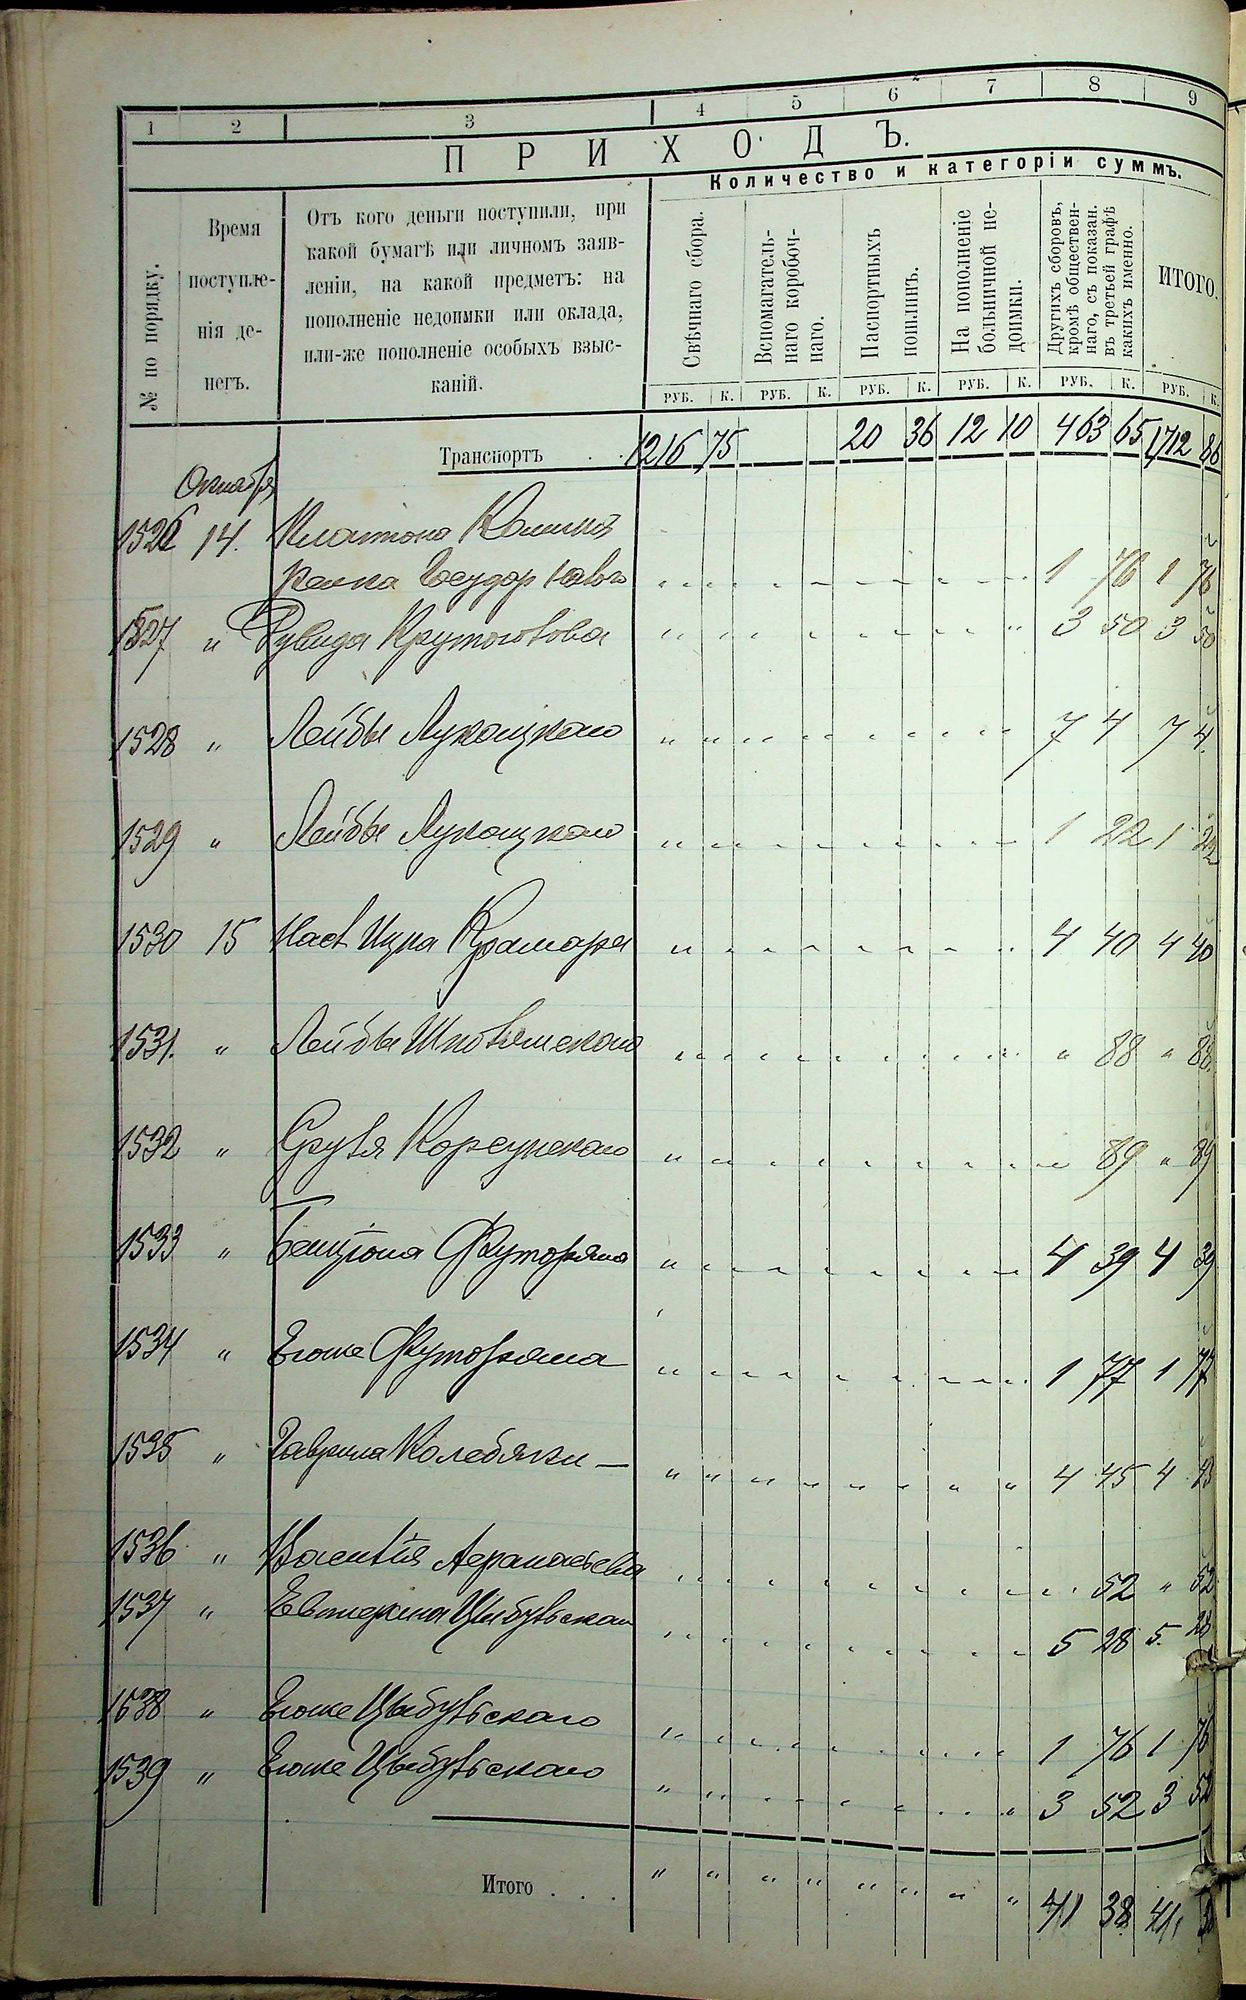 1 2 3 4 5 6 7 8 9
ПРИХОДЪ.
Количество и категоріи суммъ.
№ по порядку.
Время
поступле-
нія де-
негъ.
Отъ кого деньги поступили, при
какой бумагѣ или личномъ заяв-
леніи, на какой предметъ: на
пополненіе недоимки или оклада,
или-же пополненіе особыхъ взыс-
каній.
Свѣчнаго сбора.
Вспомагатель-
наго коробоч-
наго.
Паспортныхъ
пошлинъ.
На пополненіе
больничной не-
доимки.
Другихъ сборовъ,
кромѣ обществен-
наго, съ показан.
въ третьей графѣ
какихъ именно.
ИТОГО.
РУБ. К. РУБ. К. РУБ. К. РУБ. К. РУБ. К. РУБ. К.
Транспортъ . . 1216 75 20 36 12 10 463 65 1712 86
Октября
1526 14. Платона
1 76 1 76
1527 " Рувида 3 50 3 50
1528 " Лейбы Лукацкаго " " " " 7 4 7 4
1529 " Лейбы Лукацкаго " " " " 1 22 1 22
1530 15 Насл Ицка Крамаря " " " " 4 40 4 40
1531. " Лейбы " " " " " 88 " 88
1532 " Сруля Корсунскаго " " " " 89 " 89
1533 " Бенціона Футоряна " " " " 4 39 4 39
1534 " Іосже Футоряна " " " " 1 77 1 77
1535 " Гаврила Колебяки — " " " " 4 45 4 45
1536 " Василія Афанасьева " " " " 52 " 52
1537 " " " " " 5 28 5 28
1538 " Цыбульскаго " " " " 1 76 1 76
1539 " Цыбульскаго " " " " 3 52 3 52
Итого . . . " " " " " " " " 41 38 41 38